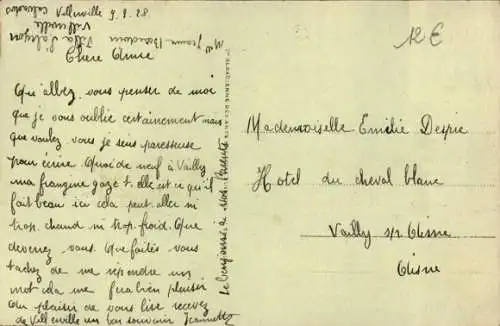 Villerville 9.9.28
Calvados
Villerville
Villa
Mlle Jeanne
Chère Amie
Qu'allez vous penser de moi
que je vous oublie certainement mais
que voulez vous je suis paresseuse
pour écrire. Quoi de neuf à Vailly
ma frangine gaze t. elle est ce qu'il
fait beau ici cela peut aller ni
trop. chaud ni trop. froid. Que
devenez vous. Que faites vous
tachez de me répondre un
mot cela me fera bien plaisir
Du plaisir de vous lire recevez
de Villerville un bon souvenir Jeannette
Le bonjour à vos Parents
12 €
Mademoiselle Emilie Despie
Hotel du cheval blanc
Vailly s/r Aisne
Aisne